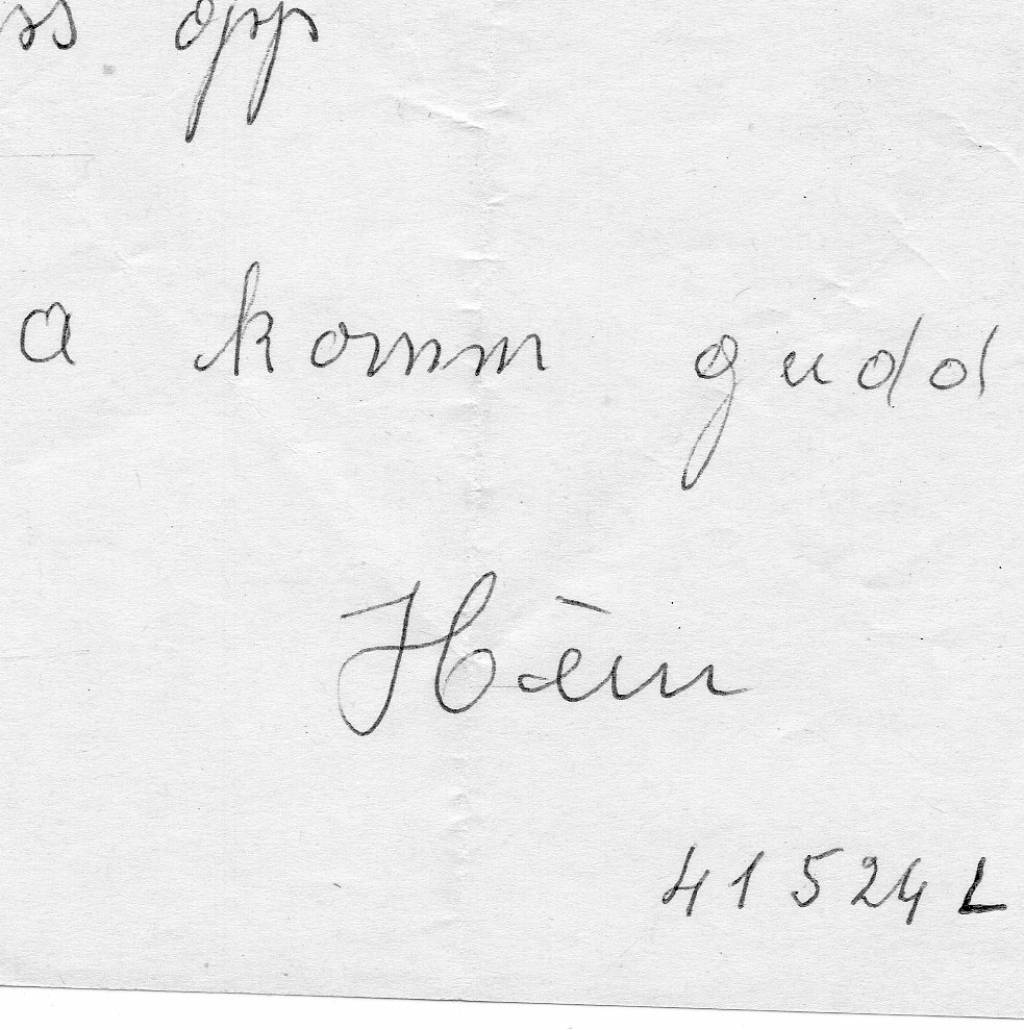 ss opp
a komm gudd
Hèm
41524L